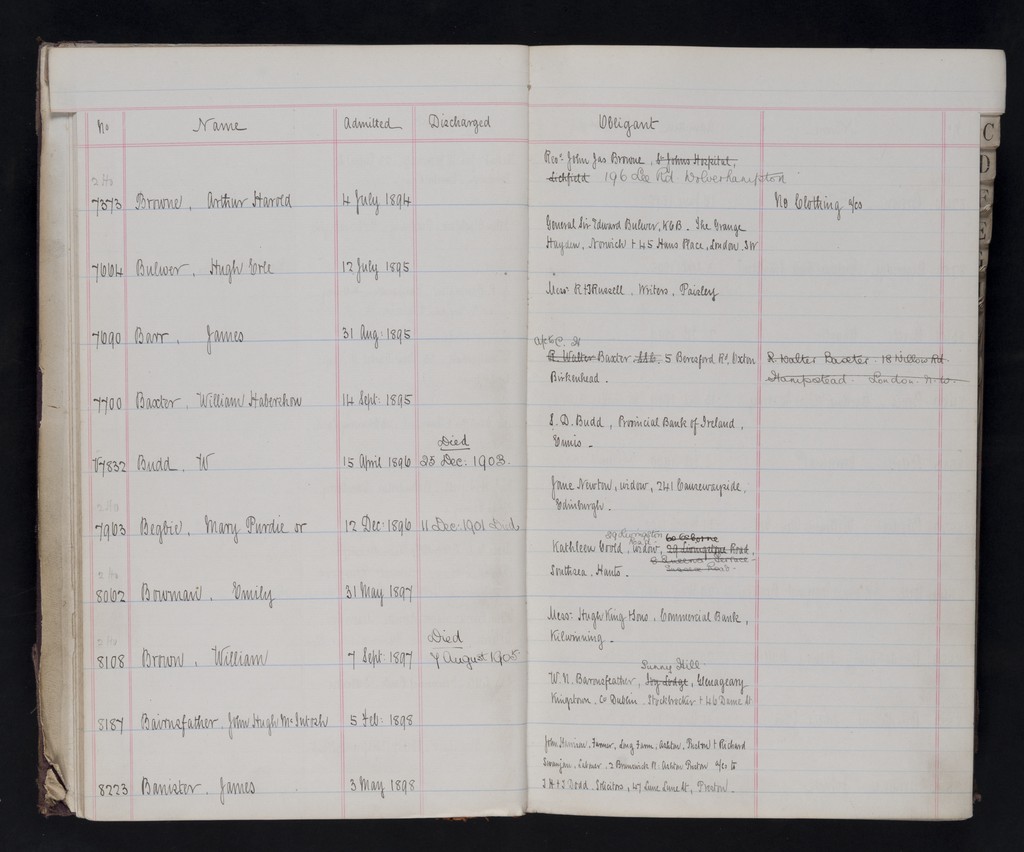 No Name Admitted Discharged Obligant
Revd John Jas Browne, St Johns Hospital,
2 Ho Lichfield 196 Lea Rd Wolverhampton
7573 Browne, Arthur Harold 4 July 1894 No Clothing a/cs
General Sir Edward Bulwer, KCB. The Grange
Haydon, Norwich + 45 Hans Place, London. SW
7664 Bulwer, Hugh Erle 12 July 1895
Messrs R & J Russell, Writers, Paisley
7690 Barr, James 31 Aug: 1895
a/c to C. H
R. Walter Baxter 5 Beresford Rd, Oxton R Walter Baxter. 18 Willow Rd
Birkenhead. Hampstead. London. N.W.
7700 Baxter, William Habershon 14 Sept: 1895
S. D. Budd, Provincial Bank of Ireland,
Died Ennis.
7832 Budd. W 15 April 1896 25 Dec: 1903.
Jane Newton, widow, 241 Causewayside,
2 Ho Edinburgh.
7963 Begbie, Mary Purdie or 12 Dec: 1896 11 Dec: 1901 Died
29 Livingston Road 60 Osborne
Kathleen Goold, widow, 29 Livingstone Road,
8 Queens Terrace
Southsea. Hants.
2 Ho
8062 Bowman, Emily 31 May 1897
Messrs Hugh King & Sons, Commercial Bank,
2 Ho Died Kilwinning.
8108 Brown, William 7 Sept: 1897 7 August 1905
Sunny Hill
W. N. Bairnsfather, Ivy Lodge, Glenageary
Kingstown. Co Dublin. Stockbrocker + 46 Dame St
8187 Bairnsfather, John Hugh McIntosh 5 Feb: 1898
John Farmer, Long Farm, Ashton, Preston & Richard
2 Brunswick Pl. Ashton Preston a/cs to
8223 Banister, James 3 May 1898 J. H & J Dodd. Solicitors, 47 Lune St, Preston.
C
D
F
E
G